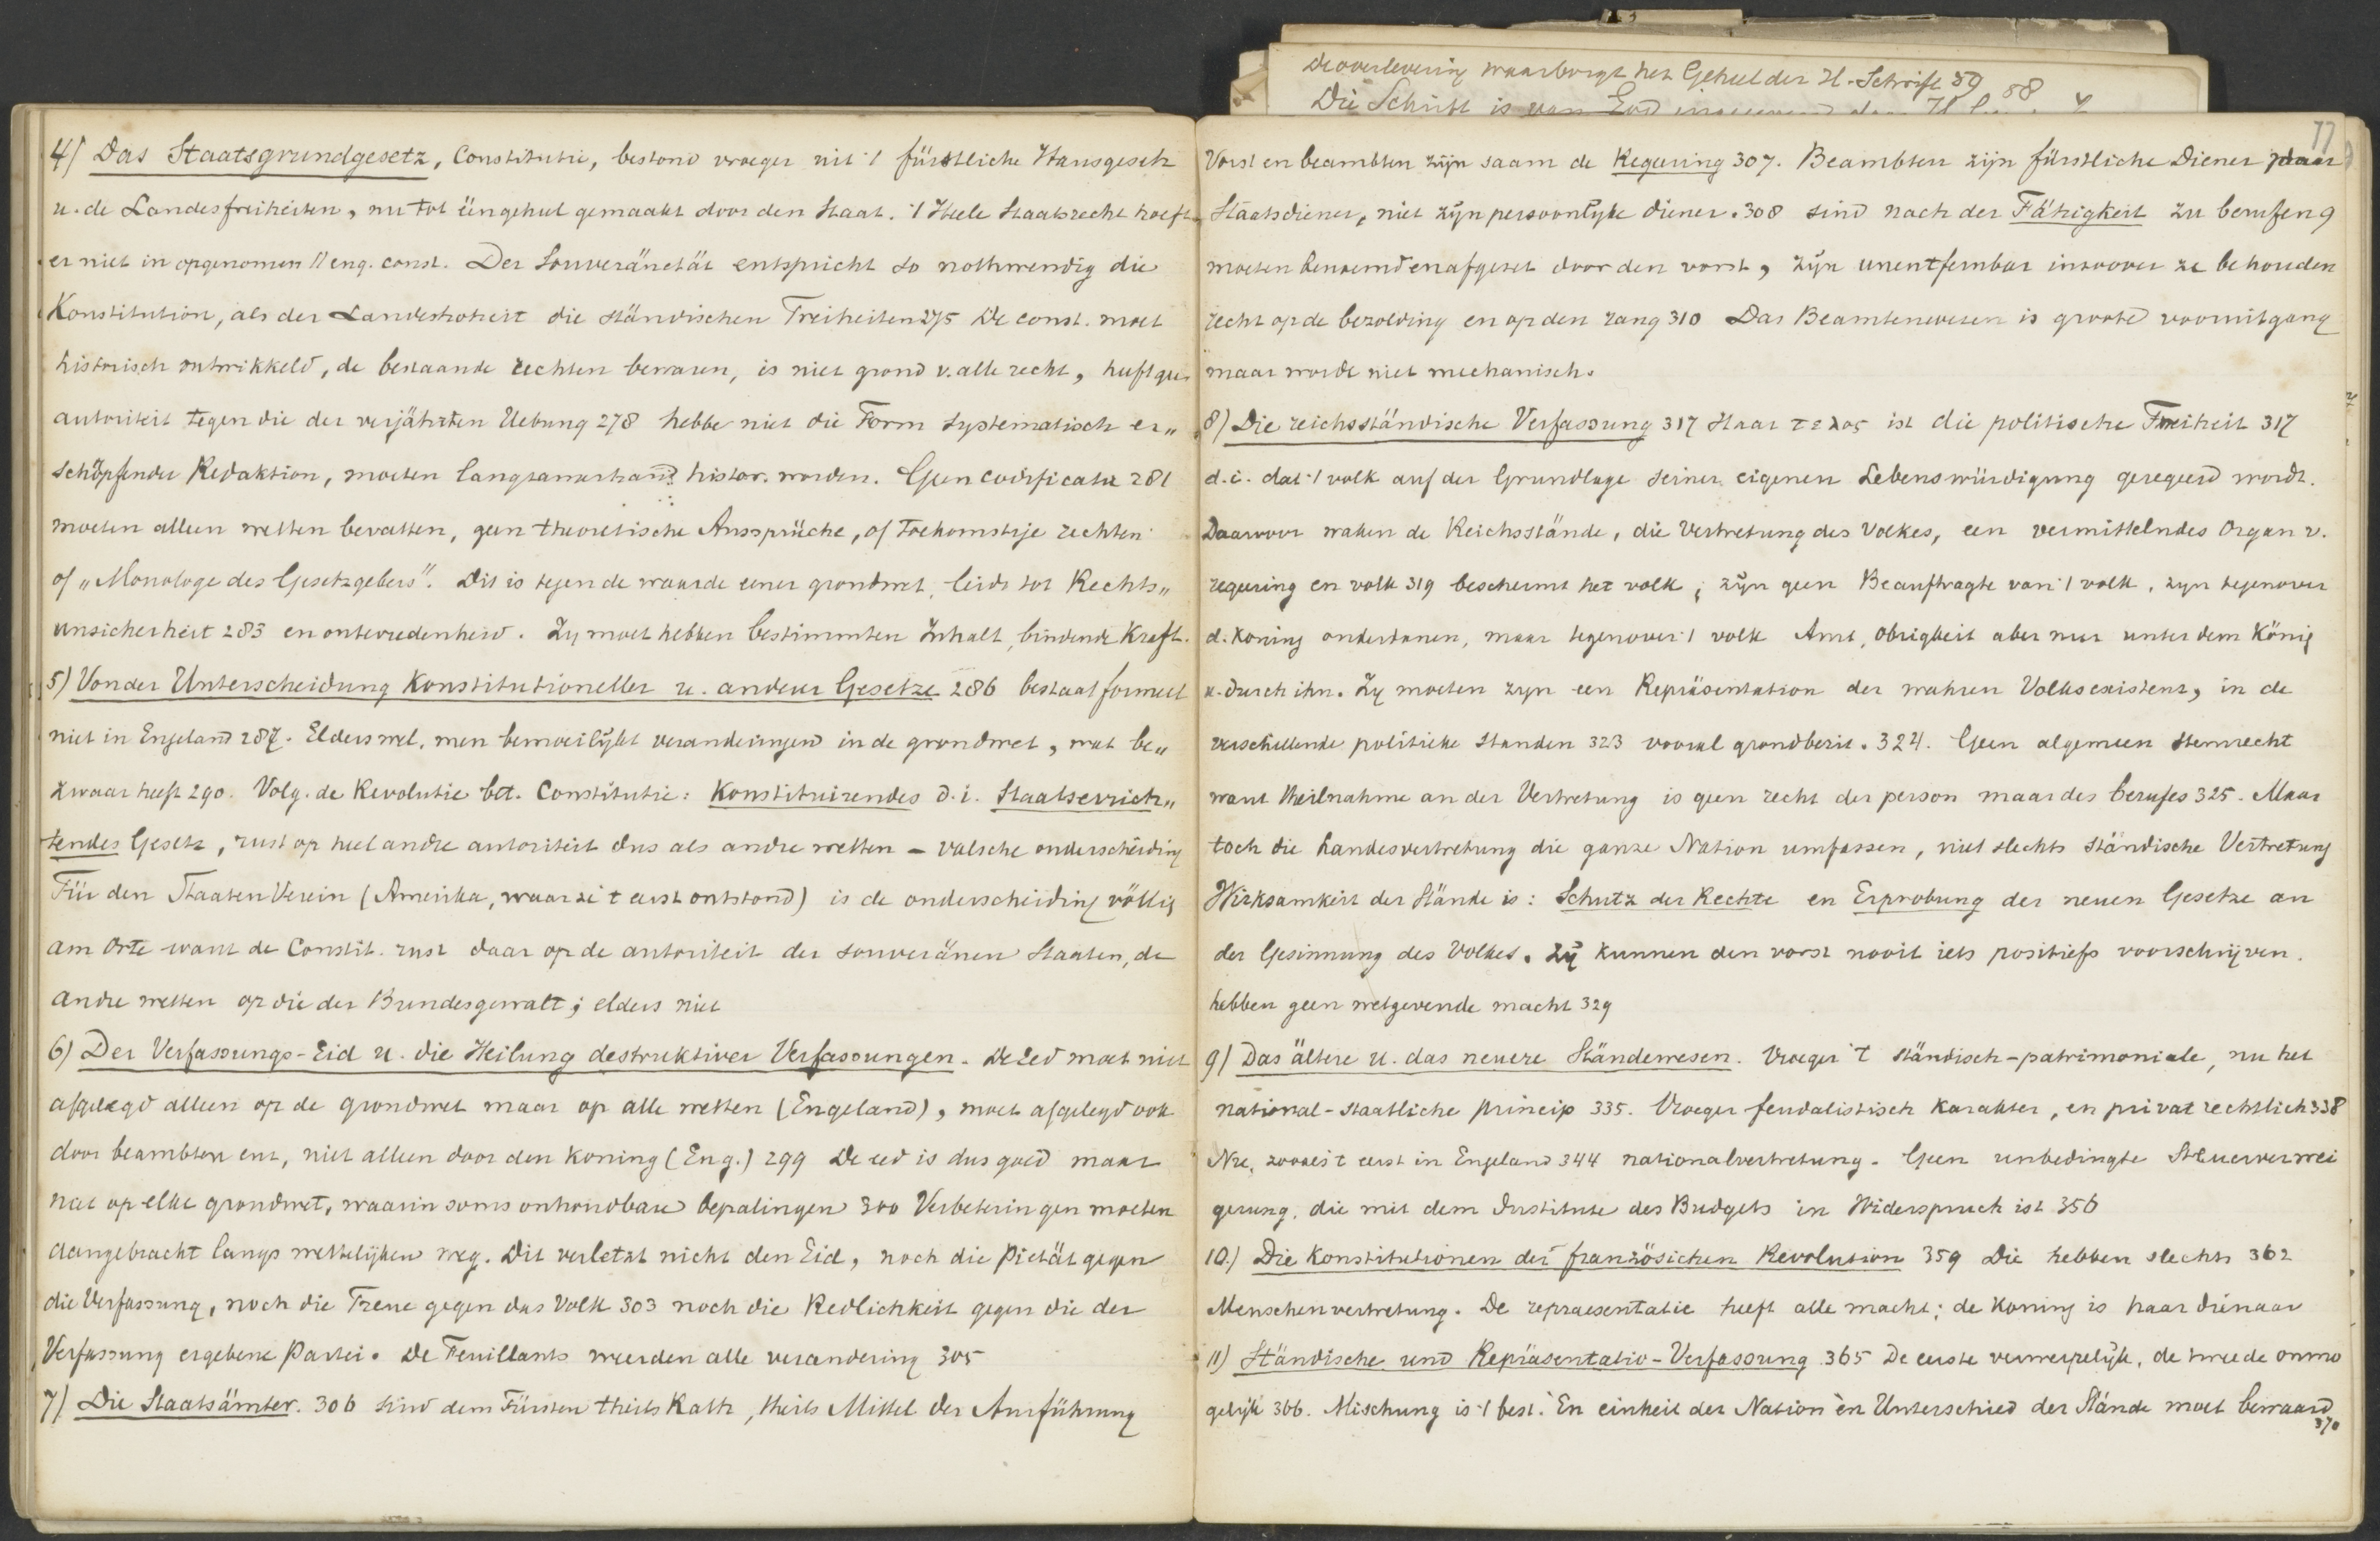 De overlevering waarborgt het Geheel der H. Schrift 59 58
Die Schrift is van God
77
4) Das Staatsgrundgesetz, Constitutie, bestond vroeger uit 't fürstliche Hausgesetz
u. de Landesfreiheiten, nu tot ééngeheel gemaakt door den Staat. 't Heele Staatsrecht hoeft
er niet in opgenomen // eng. const. Der Souveränetät entspricht so nothwendig die
Konstitution, als der Landeshoheit die ständischen Freiheiten 275 De const. moet
historisch ontwikkeld, de bestaande rechten bewaren, is niet grond v. alle recht, heeft geen
autoriteit tegen die der verjährten Uebung 278 hebbe niet die Form systematisch er„
schöpfender Redaktion, moeten langzamerhand histor. worden. Geen codificatie 281
moeten alleen wetten bevatten, geen theoretische Aussprüche, of toekomstige rechten
of „Monologe des Gesetzgebers". Dit is tegen de waarde eener grondwet, leidt tot Rechts„
unsicherheit 283 en ontevredenheid. Zij moet hebben bestimmten Inhalt, bindende Kraft.
5) Von der Unterscheidung Konstitutioneller u. anderer Gesetze 286 bestaat formeel
niet in Engeland 287. Elders wel, men bemoeilijkt veranderingen in de grondwet, wat be„
zwaar heeft 290. Volg. de Revolutie bet. Constitutie: Konstituirendes d.i. Staatserrich„
tendes Gesetz, rust op heel andre autoriteit dus als andre wetten – valsche onderscheiding
Für den Staaten Verein (Amerika, waar ze 't eerst ontstond) is de onderscheiding völlig
am Orte want de Constit. rust daar op de autoriteit der souveränen Staaten, de
andre wetten op die der Bundesgewalt; elders niet
6) Der Verfassungs-Eid u. die Heilung destruktiver Verfassungen. De Eed moet niet
afgelegd alleen op de grondwet maar op alle wetten (Engeland), moet afgelegd ook
door beambten enz, niet alleen door den Koning (Eng.) 299 De eed is dus goed maar
niet op elke grondwet, waarin soms onhoudbare bepalingen 300 Verbeteringen moeten
aangebracht langs wettelijken weg. Dit verletzt nicht den Eid, noch die Pietät gegen
die Verfassung, noch die Treue gegen das Volk 303 noch die Redlichkeit gegen die der
Verfassung ergebene Partei. De Feuillants weerden alle verandering 305
7) Die Staatsämter. 306 sind dem Fürsten theils Rath, theils Mittel der Ausführung
Vorst en beambten zijn saam de Regeering 307. Beambten zijn fürstliche Diener
Staatsdiener, niet zijn persoonlijke diener. 308 sind nach der Fähigkeit zu berufen 9
moeten benoemd en afgezet door den vorst, zijn unentfernbar inzoover ze behouden
recht op de bezolding en op den rang 310 Das Beamtenwesen is groote vooruitgang
maar worde niet mechanisch.
8) Die reichsständische Verfassung 317 Haar τελος ist die politische Freiheit 317
d.i. dat 't volk auf der Grundlage seiner eigenen Lebenswürdigung geregeerd wordt.
Daarvoor waken de Reichsstände, die Vertretung des Volkes, een vermittelndes Organ v.
regeering en volk 319 beschermt het volk, zijn geen Beauftragte van 't volk, zijn tegenover
d. koning onderdanen, maar tegenover 't volk Amt, Obrigkeit aber nur unter dem König
u. durch ihn. Zij moeten zijn een Repräsentation der wahren Volksexistenz, in de
verschillende politieke standen 323 vooral grondbezit. 324. Geen algemeen stemrecht
want theilnahme an der Vertretung is geen recht der person maar des berufes 325. Maar
toch die Landesvertretung die ganze Nation umfassen, niet slechts ständische Vertretung
Wirksamkeit der Stände is: Schutz der Rechte en Erprobung der neuen Gesetze an
der Gesinnung des Volkes. Zij kunnen den vorst nooit iets positiefs voorschrijven.
hebben geen wetgevende macht 329
9) Das ältere u. das neuere Ständewesen. Vroeger 't ständisch-patrimoniale, nu het
national-staatliche princip 335. Vroeger feudalistisch karakter, en privatrechtlich 338
Nu, zooals 't eerst in Engeland 344 nationalvertretung. Geen unbedingte Steuerverwei
gerung, die mit dem Institute des Budgets in Widerspruch ist 356
10.) Die Konstitutionen der französichen Revolution 359 Die hebben slechts 362
Menschenvertretung. De repraesentatie heeft alle macht; de koning is haar dienaar
11) Ständische und Repräsentativ-Verfassung 365 De eerste verwerpelijk, de tweede onmo
gelijk 366. Mischung is 't best. Èn einheit der Nation èn Unterschied der Stände moet bewaard
370